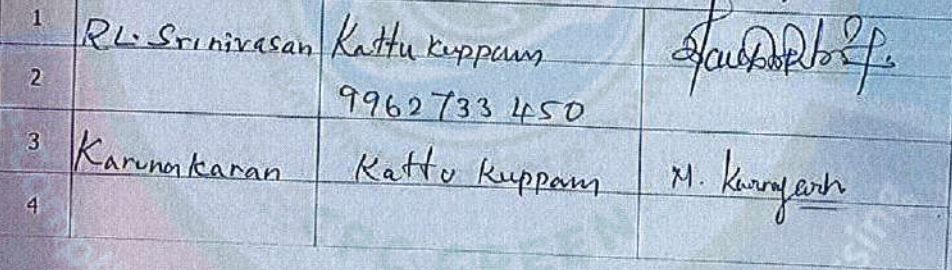 1 RL. Srinivasan Kattu kuppam
2 9962733450
3 Karunakaran Kattu Kuppam M.
4